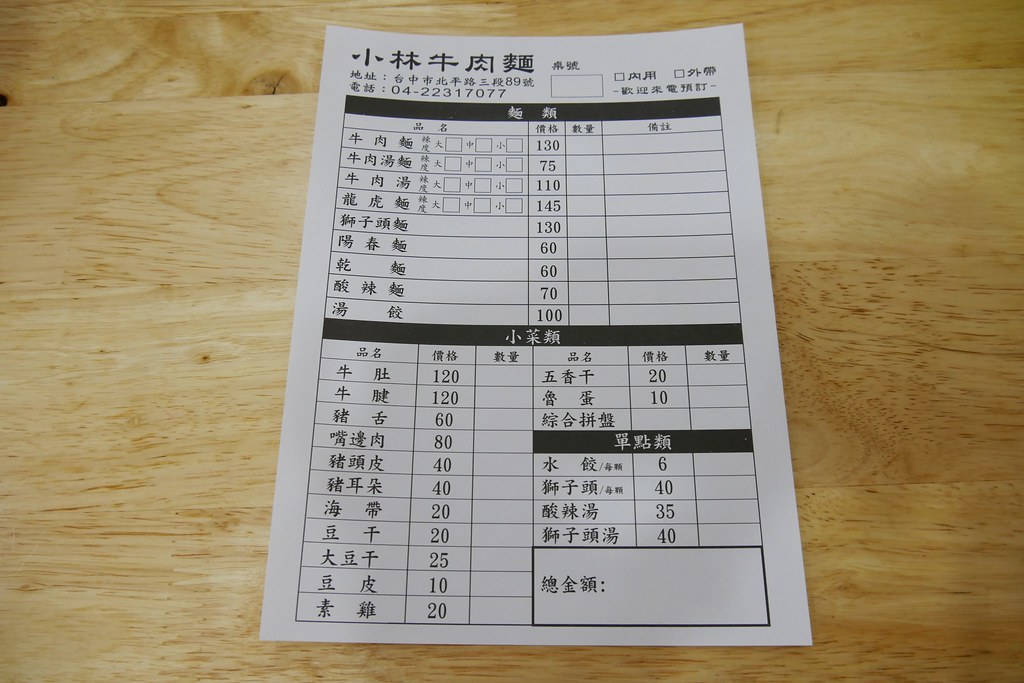 小林牛肉麵 桌號
□內用 □外帶
地址：台中市北平路三段89號
電話：04-22317077 -歡迎來電預訂-
麵 類
品 名 價格 數量 備註
牛肉麵 辣度 大□ 中□ 小□ 130
牛肉湯麵 辣度 大□ 中□ 小□ 75
牛肉湯 辣度 大□ 中□ 小□ 110
龍虎麵 辣度 大□ 中□ 小□ 145
獅子頭麵 130
陽春麵 60
乾 麵 60
酸辣麵 70
湯 餃 100
小菜類
品名 價格 數量 品名 價格 數量
牛 肚 120 五香干 20
牛 腱 120 魯 蛋 10
豬 舌 60 綜合拼盤
嘴邊肉 80 單點類
豬頭皮 40 水 餃/每顆 6
豬耳朵 40 獅子頭/每顆 40
海 帶 20 酸辣湯 35
豆 干 20 獅子頭湯 40
大豆干 25
豆 皮 10 總金額：
素 雞 20